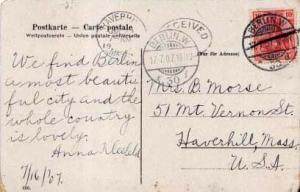 Postkarte — Carte postale
Weltpostverein — Union postale universelle
Nur für Adresse
RECEIVED
BERLIN.W
17.7.07
BERLIN.W.
We find Berlin
a most beauti
ful city and the
whole country
is lovely.
Anna
7/16/07.
Mrs. B. Morse
51 Mt. Vernon St.
Haverhill, Mass,
U.S.A.